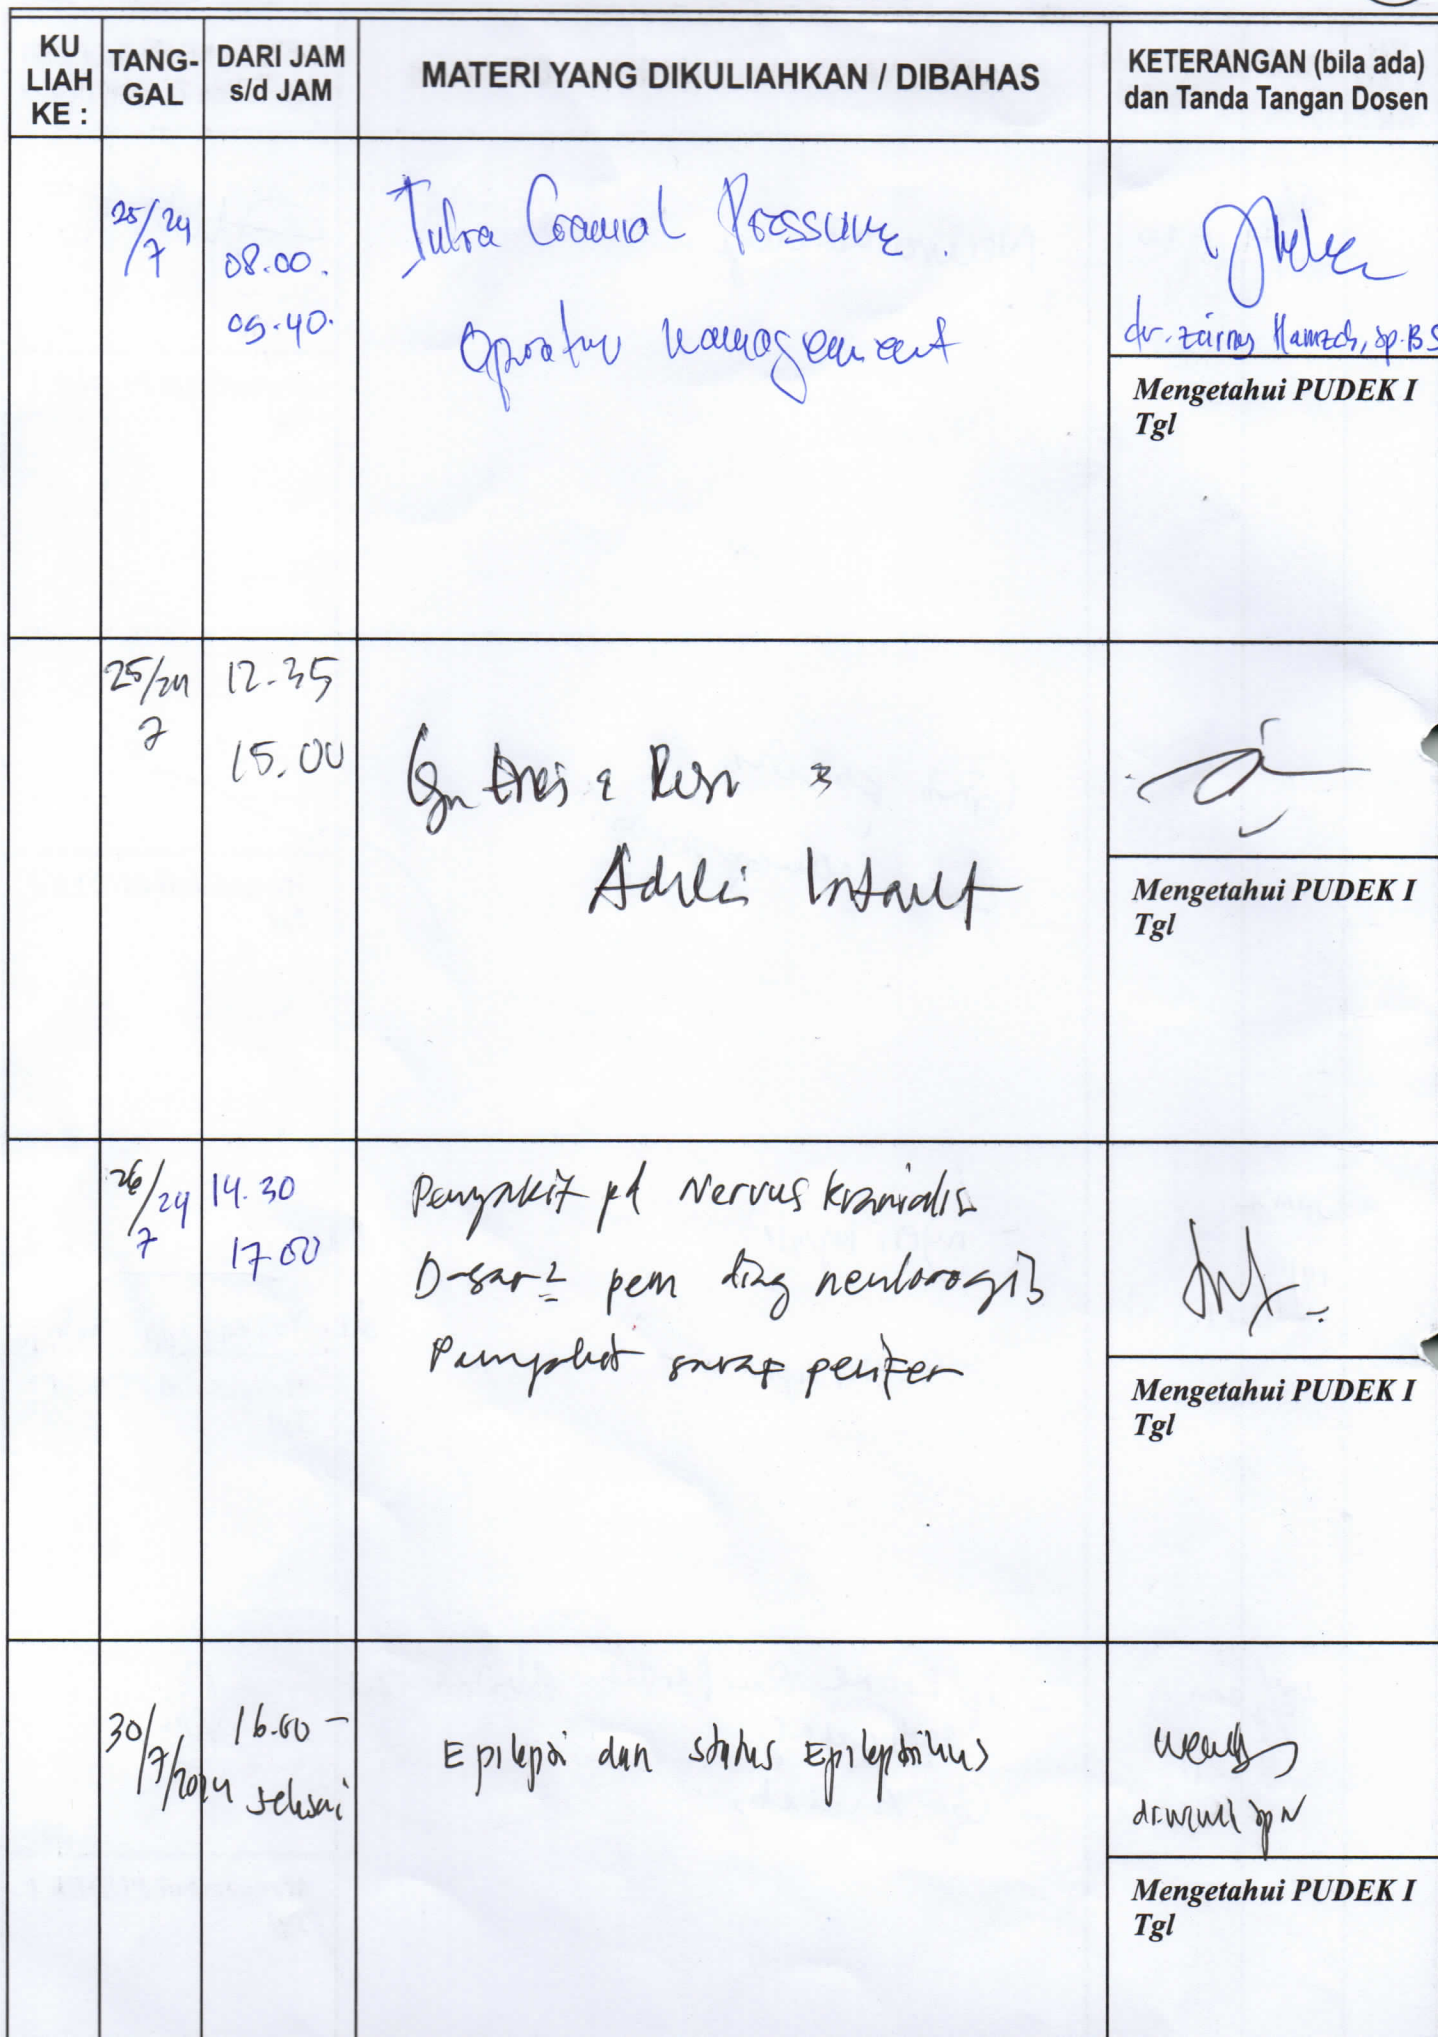 KU LIAH KE :
TANG-GAL
DARI JAM s/d JAM
MATERI YANG DIKULIAHKAN / DIBAHAS
KETERANGAN (bila ada) dan Tanda Tangan Dosen
25/24 7
08.00.
09.40.
Intra Cranial Pressure.
management
dr. Hamzah, Sp.BS
Mengetahui PUDEK I
Tgl
25/24 7
12.35
15.00
Mengetahui PUDEK I
Tgl
26/24 7
14.30
17.00
Penyakit pd Nervus kranialis
Dasar2 pem diag neulorogis
Penyakit saraf perifer
Mengetahui PUDEK I
Tgl
30/7/2024
16.00 -
selesai
Epilepsi dan status Epileptikus
Mengetahui PUDEK I
Tgl